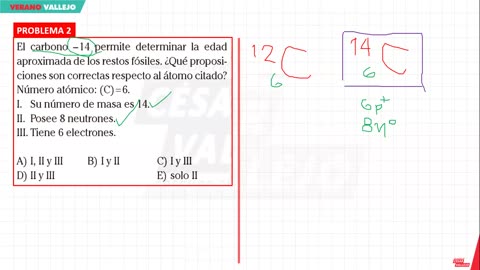 VERANO VALLEJO
PROBLEMA 2
El carbono –14 permite determinar la edad
aproximada de los restos fósiles. ¿Qué proposi-
ciones son correctas respecto al átomo citado?
Número atómico: (C)=6.
I. Su número de masa es 14.
II. Posee 8 neutrones.
III. Tiene 6 electrones.
A) I, II y III B) I y II C) I y III
D) II y III E) solo II
12 C
6
14 C
6
6p+
8n°
CÉSAR
VALLEJO